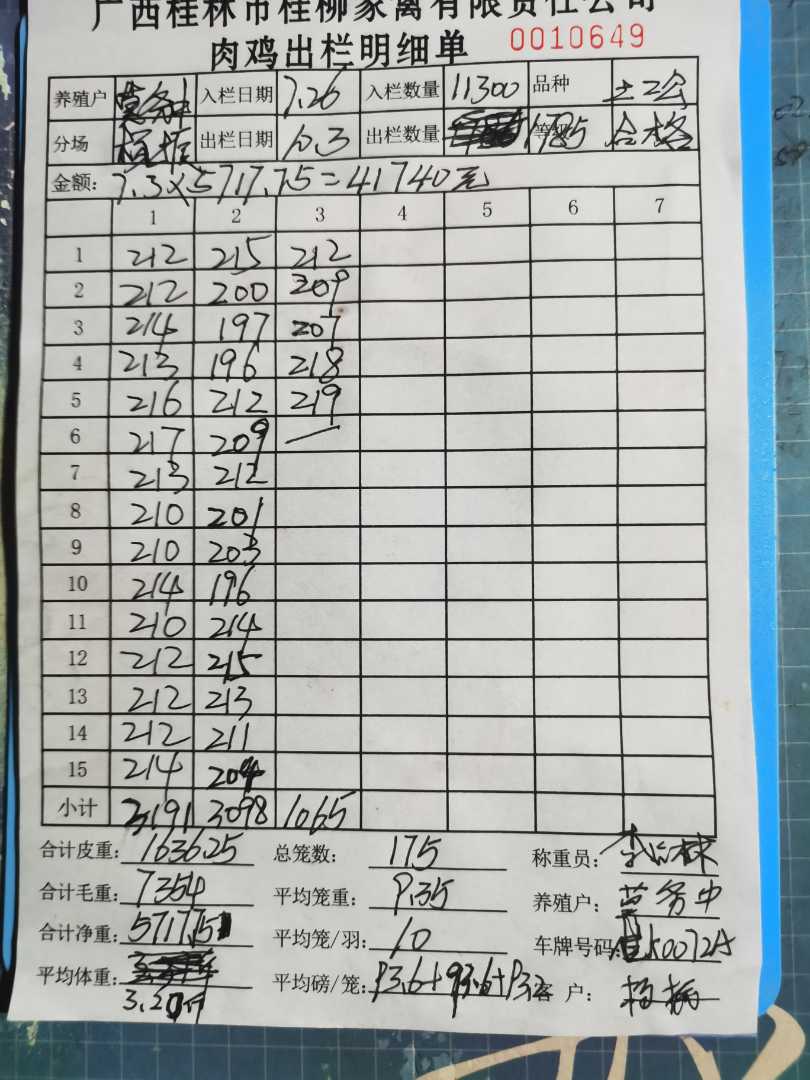 广西桂林市桂柳家禽有限责任公司
肉鸡出栏明细单 0010649
养殖户 入栏日期 7.26 入栏数量 11300 品种 土二公
分场 出栏日期 10.3 出栏数量 1785 等级 合格
金额: 7.3×5717.75=41740元
1 2 3 4 5 6 7
1 212 215 212
2 212 200 209
3 214 197 207
4 213 196 218
5 216 212 219
6 217 209 —
7 213 212
8 210 201
9 210 203
10 214 196
11 210 214
12 212 215
13 212 213
14 212 211
15 214 204
小计 3191 3098 1065
合计皮重: 1636.25 总笼数: 175 称重员:
合计毛重: 7354 平均笼重: 9.35 养殖户: 莫务中
合计净重: 5717.75 平均笼/羽: 10 车牌号码: 桂K0072A
平均体重: 3.20斤 平均磅/笼: P3.6+93.6+P3.2 客 户: 杨振